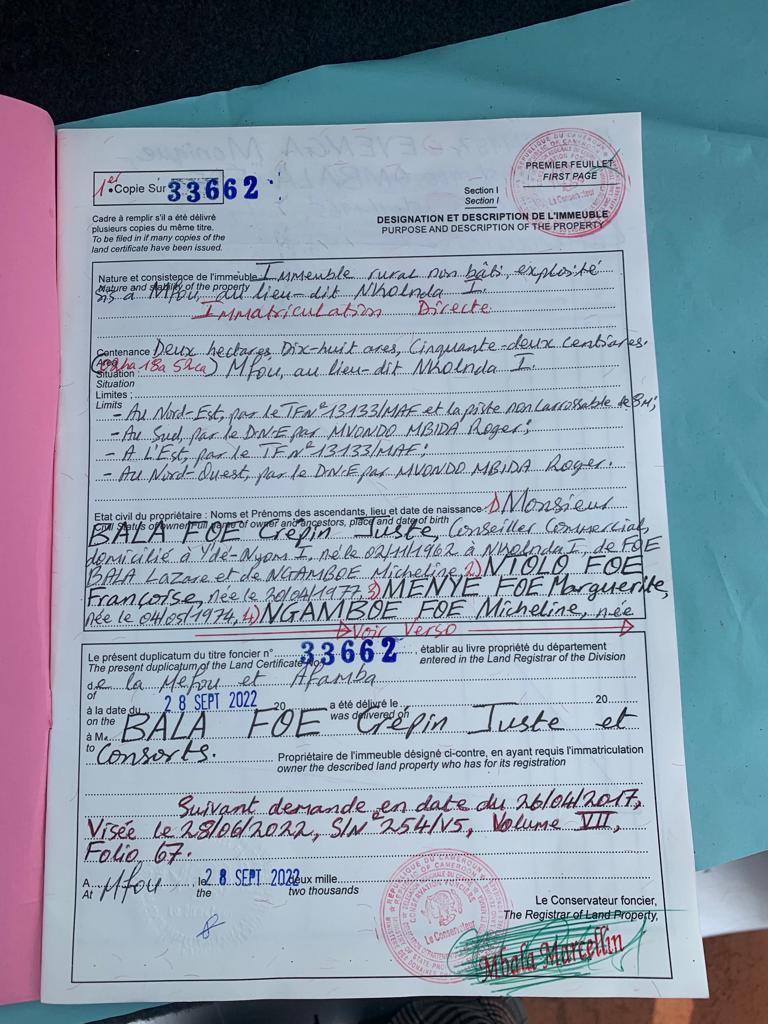 PREMIER FEUILLET
FIRST PAGE
1er Copie Sur 33662
Section I
Section I
Cadre à remplir s'il a été délivré
plusieurs copies du même titre.
To be filed in if many copies of the
land certificate have been issued.
DESIGNATION ET DESCRIPTION DE L'IMMEUBLE
PURPOSE AND DESCRIPTION OF THE PROPERTY
Nature et consistence de l'immeuble Immeuble rural non bâti, exploité
Nature and stability of the property
sis à Mfou, au lieu-dit Nkolnda I.
Immatriculation Directe
Contenance Deux hectares, Dix-huit ares, Cinquante-deux centiares.
Area
(02ha 18a 52ca) Mfou, au lieu-dit Nkolnda I.
Situation :
Situation
Limites :
Limits
- Au Nord-Est, par le TF N° 13133/MAF et la piste non carrossable de 8M;
- Au Sud, par le D.N.E par MVONDO MBIDA Roger;
- A L'Est, par le TF N° 13133/MAF;
- Au Nord-Ouest, par le D.N.E par MVONDO MBIDA Roger.
Etat civil du propriétaire : Noms et Prénoms des ascendants, lieu et date de naissance 1) Monsieur
Civil Status of owner Full name of owner and ancestors, place and date of birth
BALA FOE Crépin Juste, Conseiller Commercial,
domicilié à Ydé-Nyom I, né le 02/11/1962 à Nkolnda I, de FOE
BALA Lazare et de NGAMBOE Micheline, 2) NTOLO FOE
Françoise, née le 20/04/1977, 3) MENYE FOE Marguerite,
née le 04/05/1974, 4) NGAMBOE FOE Micheline, née
Voir Verso
Le présent duplicatum du titre foncier n° 33662, établir au livre propriété du département
The present duplicatum of the Land Certificate No. entered in the Land Registrar of the Division
de la Mefou et Afamba
of
à la date du 28 SEPT 2022 20 a été délivré le 20
on the was delivered on
à M. BALA FOE Crépin Juste et
to
Consorts. Propriétaire de l'immeuble désigné ci-contre, en ayant requis l'immatriculation
owner the described land property who has for its registration
Suivant demande en date du 26/04/2017,
Visée le 28/06/2022, S/N° 254/V5, Volume VII,
Folio 67.
A Mfou le 28 SEPT 2022 deux mille
At the two thousands
Le Conservateur foncier,
The Registrar of Land Property,
Le Conservateur
Mbala Marcellin